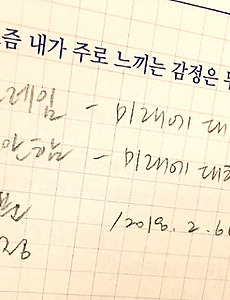 즘 내가 주로 느끼는 감정은
레임 - 미래에 대
안함 - 미래에 대
/2018. 2. 6